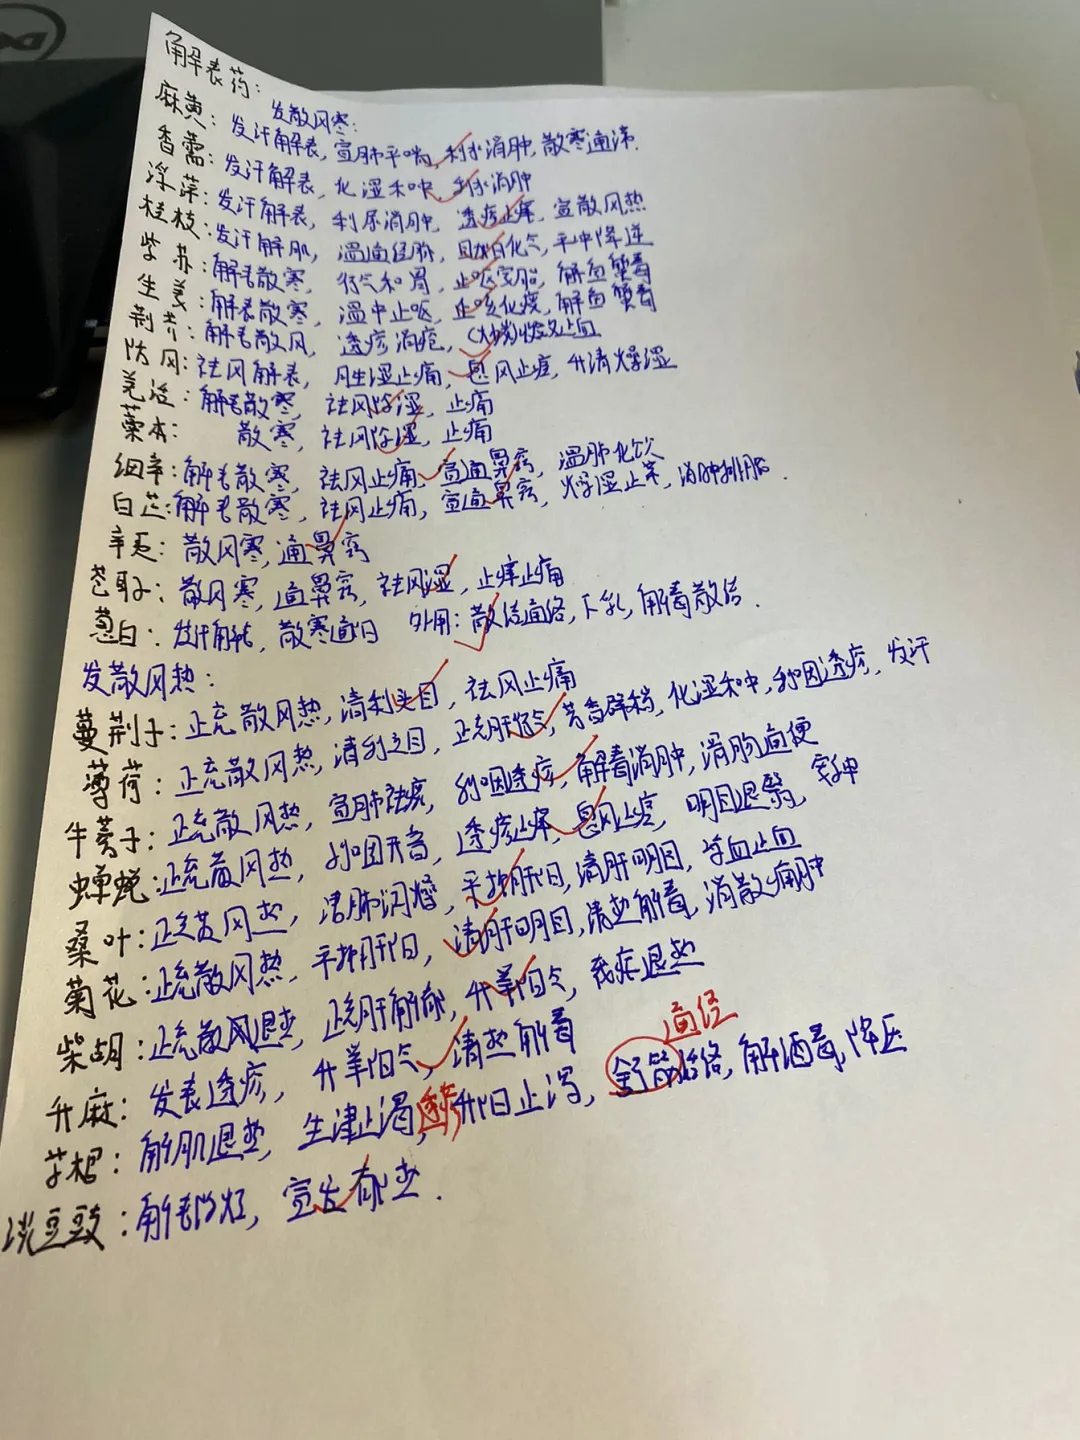 解表药：
发散风寒：
麻黄：发汗解表，宣肺平喘，利水消肿，散寒通滞．
香薷：发汗解表，化湿和中，利水消肿
浮萍：发汗解表，利尿消肿，透疹止痒，宣散风热
桂枝：发汗解肌，温通经脉，助阳化气，平冲降逆
紫苏：解表散寒，行气和胃，止呕安胎，解鱼蟹毒
生姜：解表散寒，温中止呕，止咳化痰，解鱼蟹毒
荆芥：解表散风，透疹消疮，止血
防风：祛风解表，胜湿止痛，息风止痉，升清燥湿
羌活：解表散寒，祛风除湿，止痛
藁本：散寒，祛风除湿，止痛
细辛：解表散寒，祛风止痛，宣通鼻窍，温肺化饮
白芷：解表散寒，祛风止痛，宣通鼻窍，燥湿止带，消肿排脓．
辛夷：散风寒，通鼻窍
苍耳子：散风寒，通鼻窍，祛风湿，止痒止痛
葱白：发汗解表，散寒通阳 外用：散结通络，下乳，解毒散结．
发散风热：
蔓荆子：疏散风热，清利头目，祛风止痛
薄荷：疏散风热，清利头目，疏肝行气，芳香辟秽，化湿和中，利咽透疹，发汗
牛蒡子：疏散风热，宣肺祛痰，利咽透疹，解毒消肿，滑肠通便
蝉蜕：疏散风热，利咽开音，透疹止痒，息风止痉，明目退翳，安神
桑叶：疏散风热，清肺润燥，平抑肝阳，清肝明目，凉血止血
菊花：疏散风热，平抑肝阳，清肝明目，清热解毒，消散痈肿
柴胡：疏散风退热，疏肝解郁，升举阳气，截疟退热
升麻：发表透疹，升举阳气，清热解毒
通经
葛根：解肌退热，生津止渴，透疹，升阳止泻，舒筋活络，解酒毒，降压
淡豆豉：解表除烦，宣发郁热．